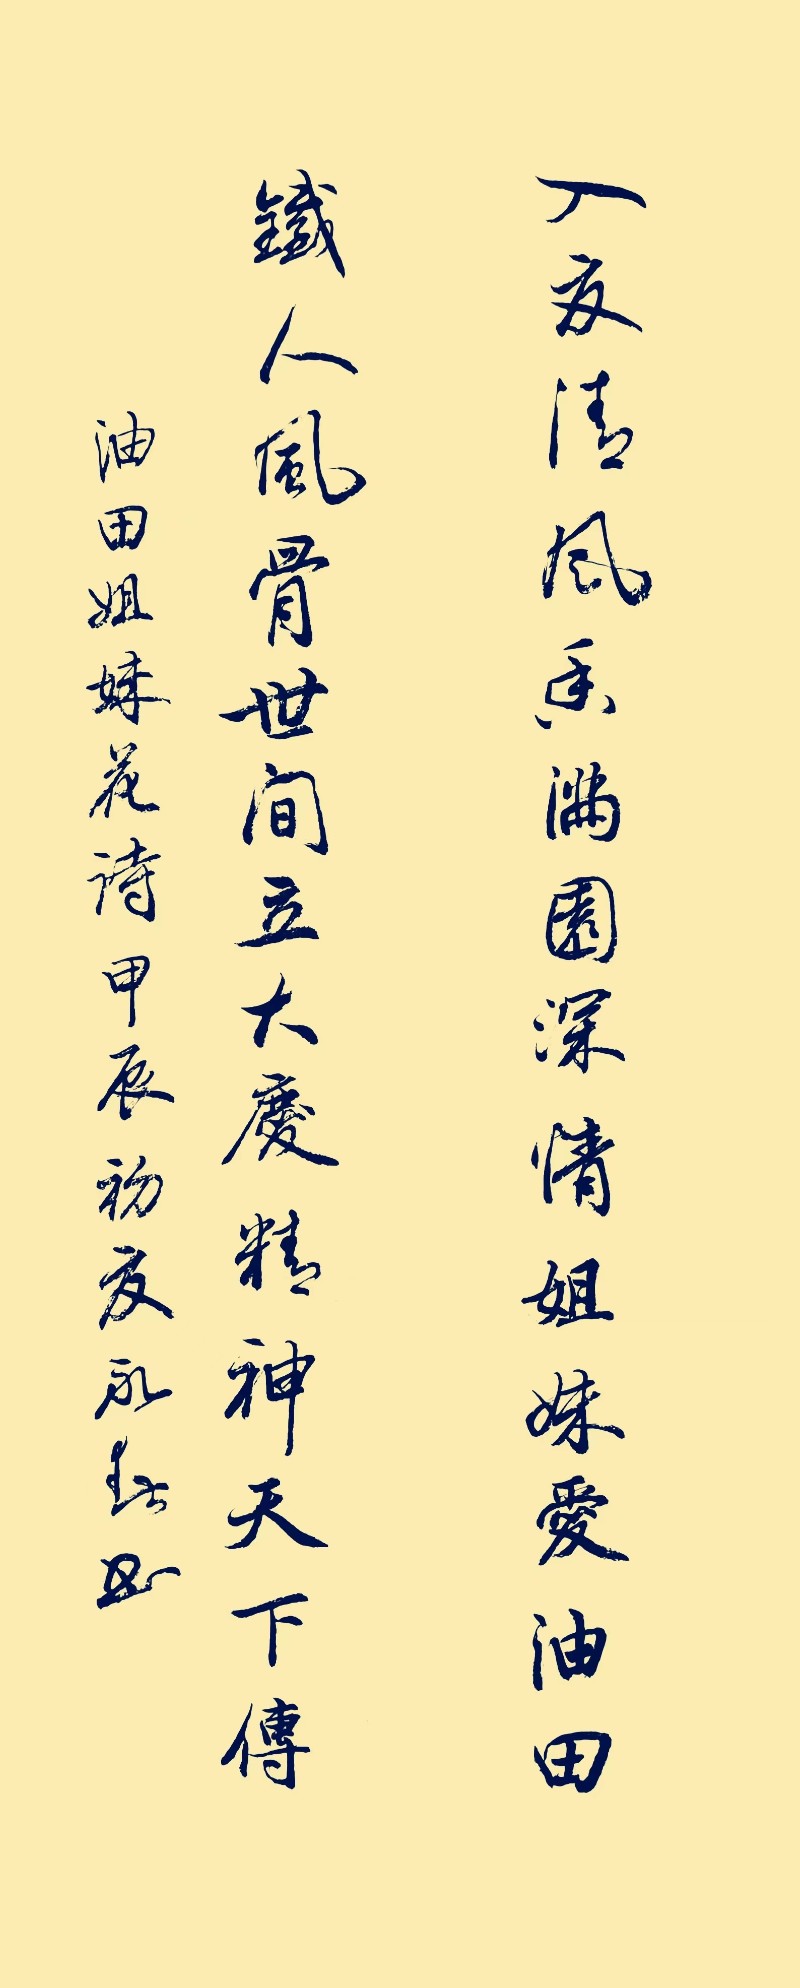 入夏清风香满園深情姐妹愛油田
鐵人風骨世间立大慶精神天下傳
油田姐妹花诗甲辰初夏永钰书